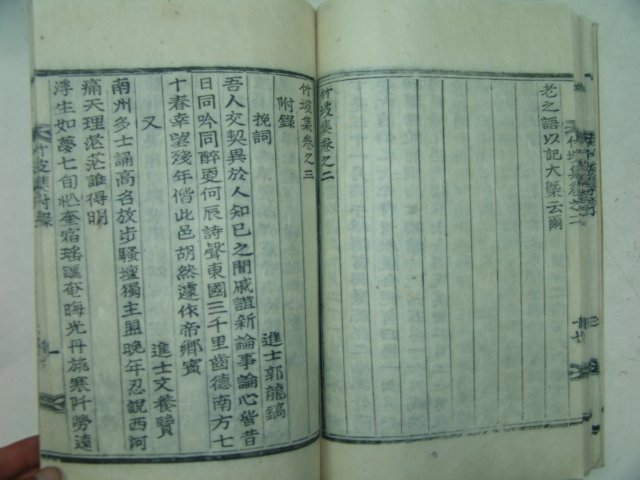 老之語以記大槩云爾
竹坡集卷之二
竹坡集卷之三
附錄
挽詞
進士郭龍鎬
吾人交契異於人知己之間戚誼新論事論心皆昔
日同吟同醉更何辰詩聲東國三千里齒德南方七
十春幸望殘年偕此邑胡然遽作帝鄉賓
又
進士文養贒
南州多士誦高名放步騷壇獨主盟晚年忍說西河
痛天理茫茫誰得明
浮生如夢七旬忙奎宿瑤躔奄晦光丹旐寒阡勞遠
竹坡集附錄